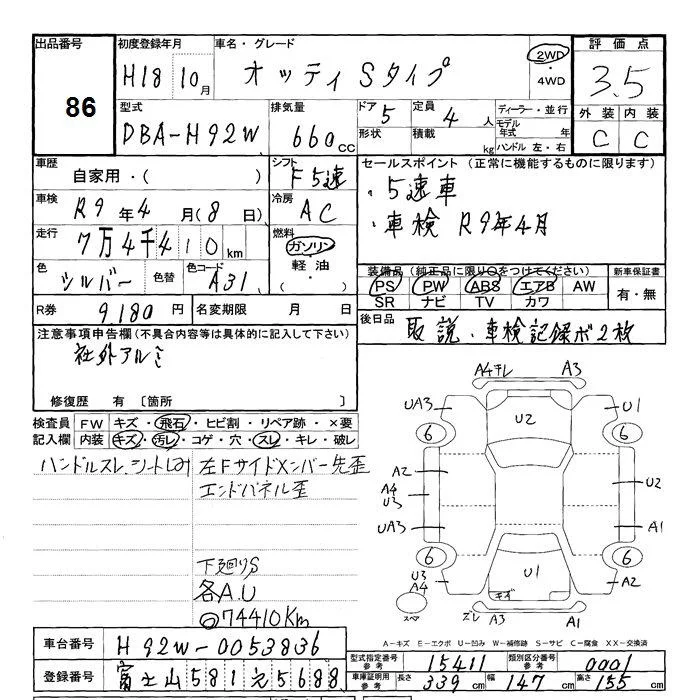 出品番号 初度登録年月 車名・グレード 評価点
86 H18 10月 オッティ Sタイプ 2WD・4WD 3.5
型式 排気量 ドア 5 定員 4人 ディーラー・並行 外装 内装
DBA-H92W 660cc 形状 積載 kg モデル年式 年 ハンドル 左・右 C C
車歴 自家用・( ) シフト F5速 セールスポイント (正常に機能するものに限ります)
車検 R9年4月(8日) 冷房 AC ・5速車
走行 7万4千410km 燃料 ガソリン・軽油・ ・車検 R9年4月
色 シルバー 色替 色コード A31 装備品 (純正品に限り○をつけてください) 新車保証書
PS PW ABS エアB AW 有・無
SR ナビ TV カワ
R券 9180円 名変期限 月 日 後日品 取説・車検記録ボ2枚
注意事項申告欄(不具合内容等は具体的に記入して下さい)
社外アルミ
修復歴 有〔箇所 〕
検査員記入欄 FW キズ・飛石・ヒビ割・リペア跡・×要
内装 キズ・汚レ・コゲ・穴・スレ・キレ・破レ
ハンドルスレ、シートしみ 左Fサイドメンバー先歪
エンドパネル歪
下廻りS
各A.U
◎74410Km
A4キレ A3
UA3 U2 U1
6 6
A2 U2
A4
U3
UA3 A1
6 6
U3 U1 A2
A4 キズ
スペア ズレ A3 A1
A-キズ E-エクボ U-凹み W-補修跡 S-サビ C-腐食 XX-交換済
車台番号 H92W-0053836
型式指定番号 参考 15411 類別区分番号 参考 0001
登録番号 富士山581え5688
車庫証明用 参考 長さ 339cm 幅 147cm 高さ 155cm